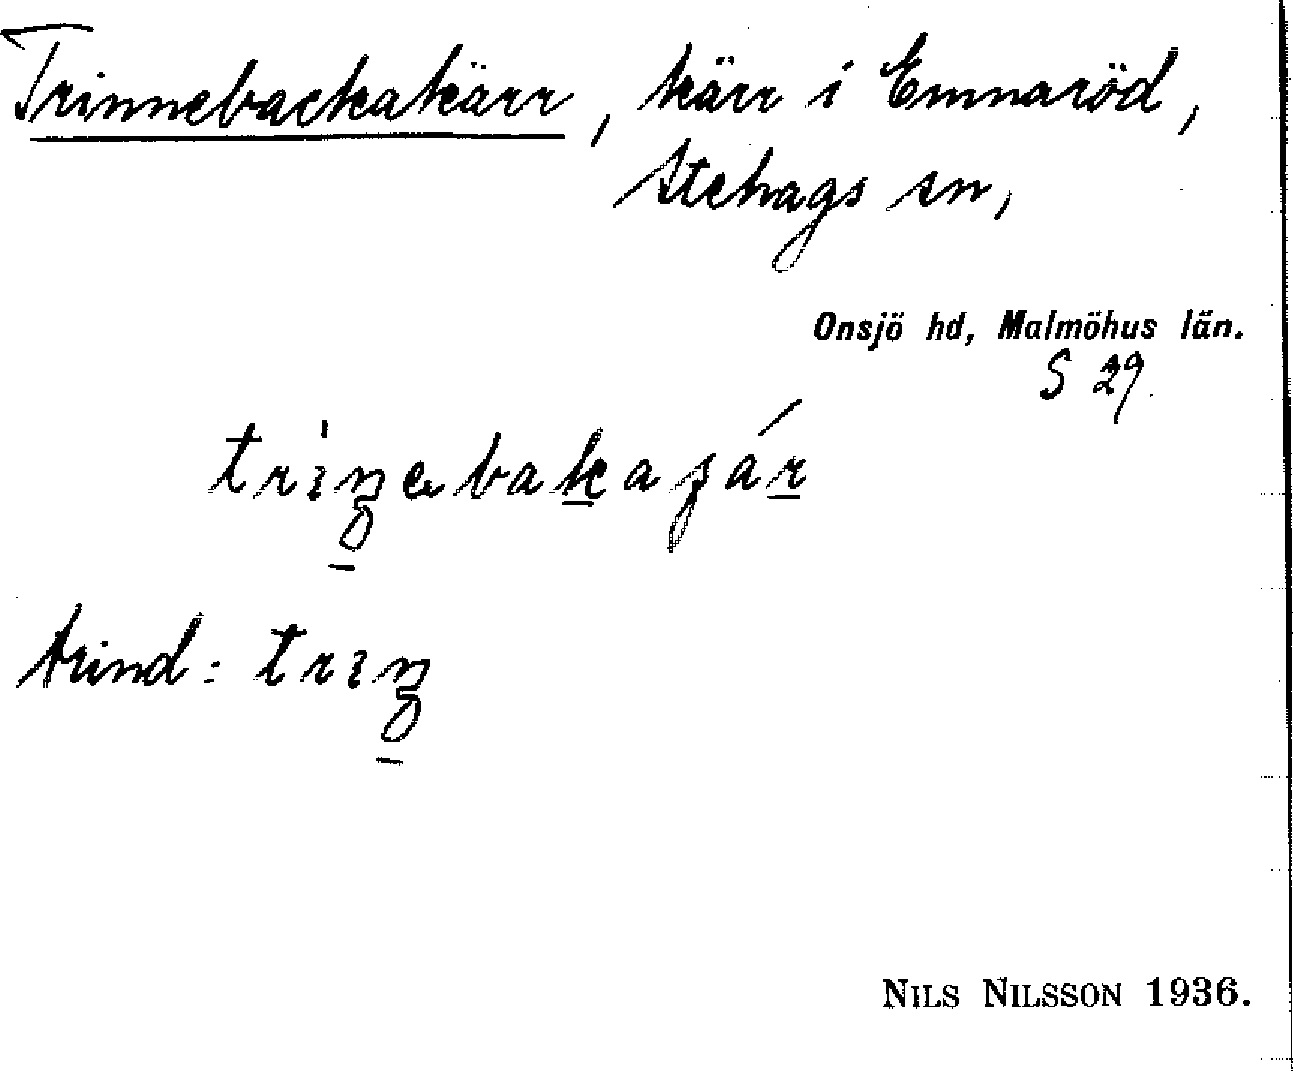 Trinnebackakärr, kärr i Emmaröd,
Stehags sn,
Onsjö hd, Malmöhus län.
S 29.
trind:
NILS NILSSON 1936.